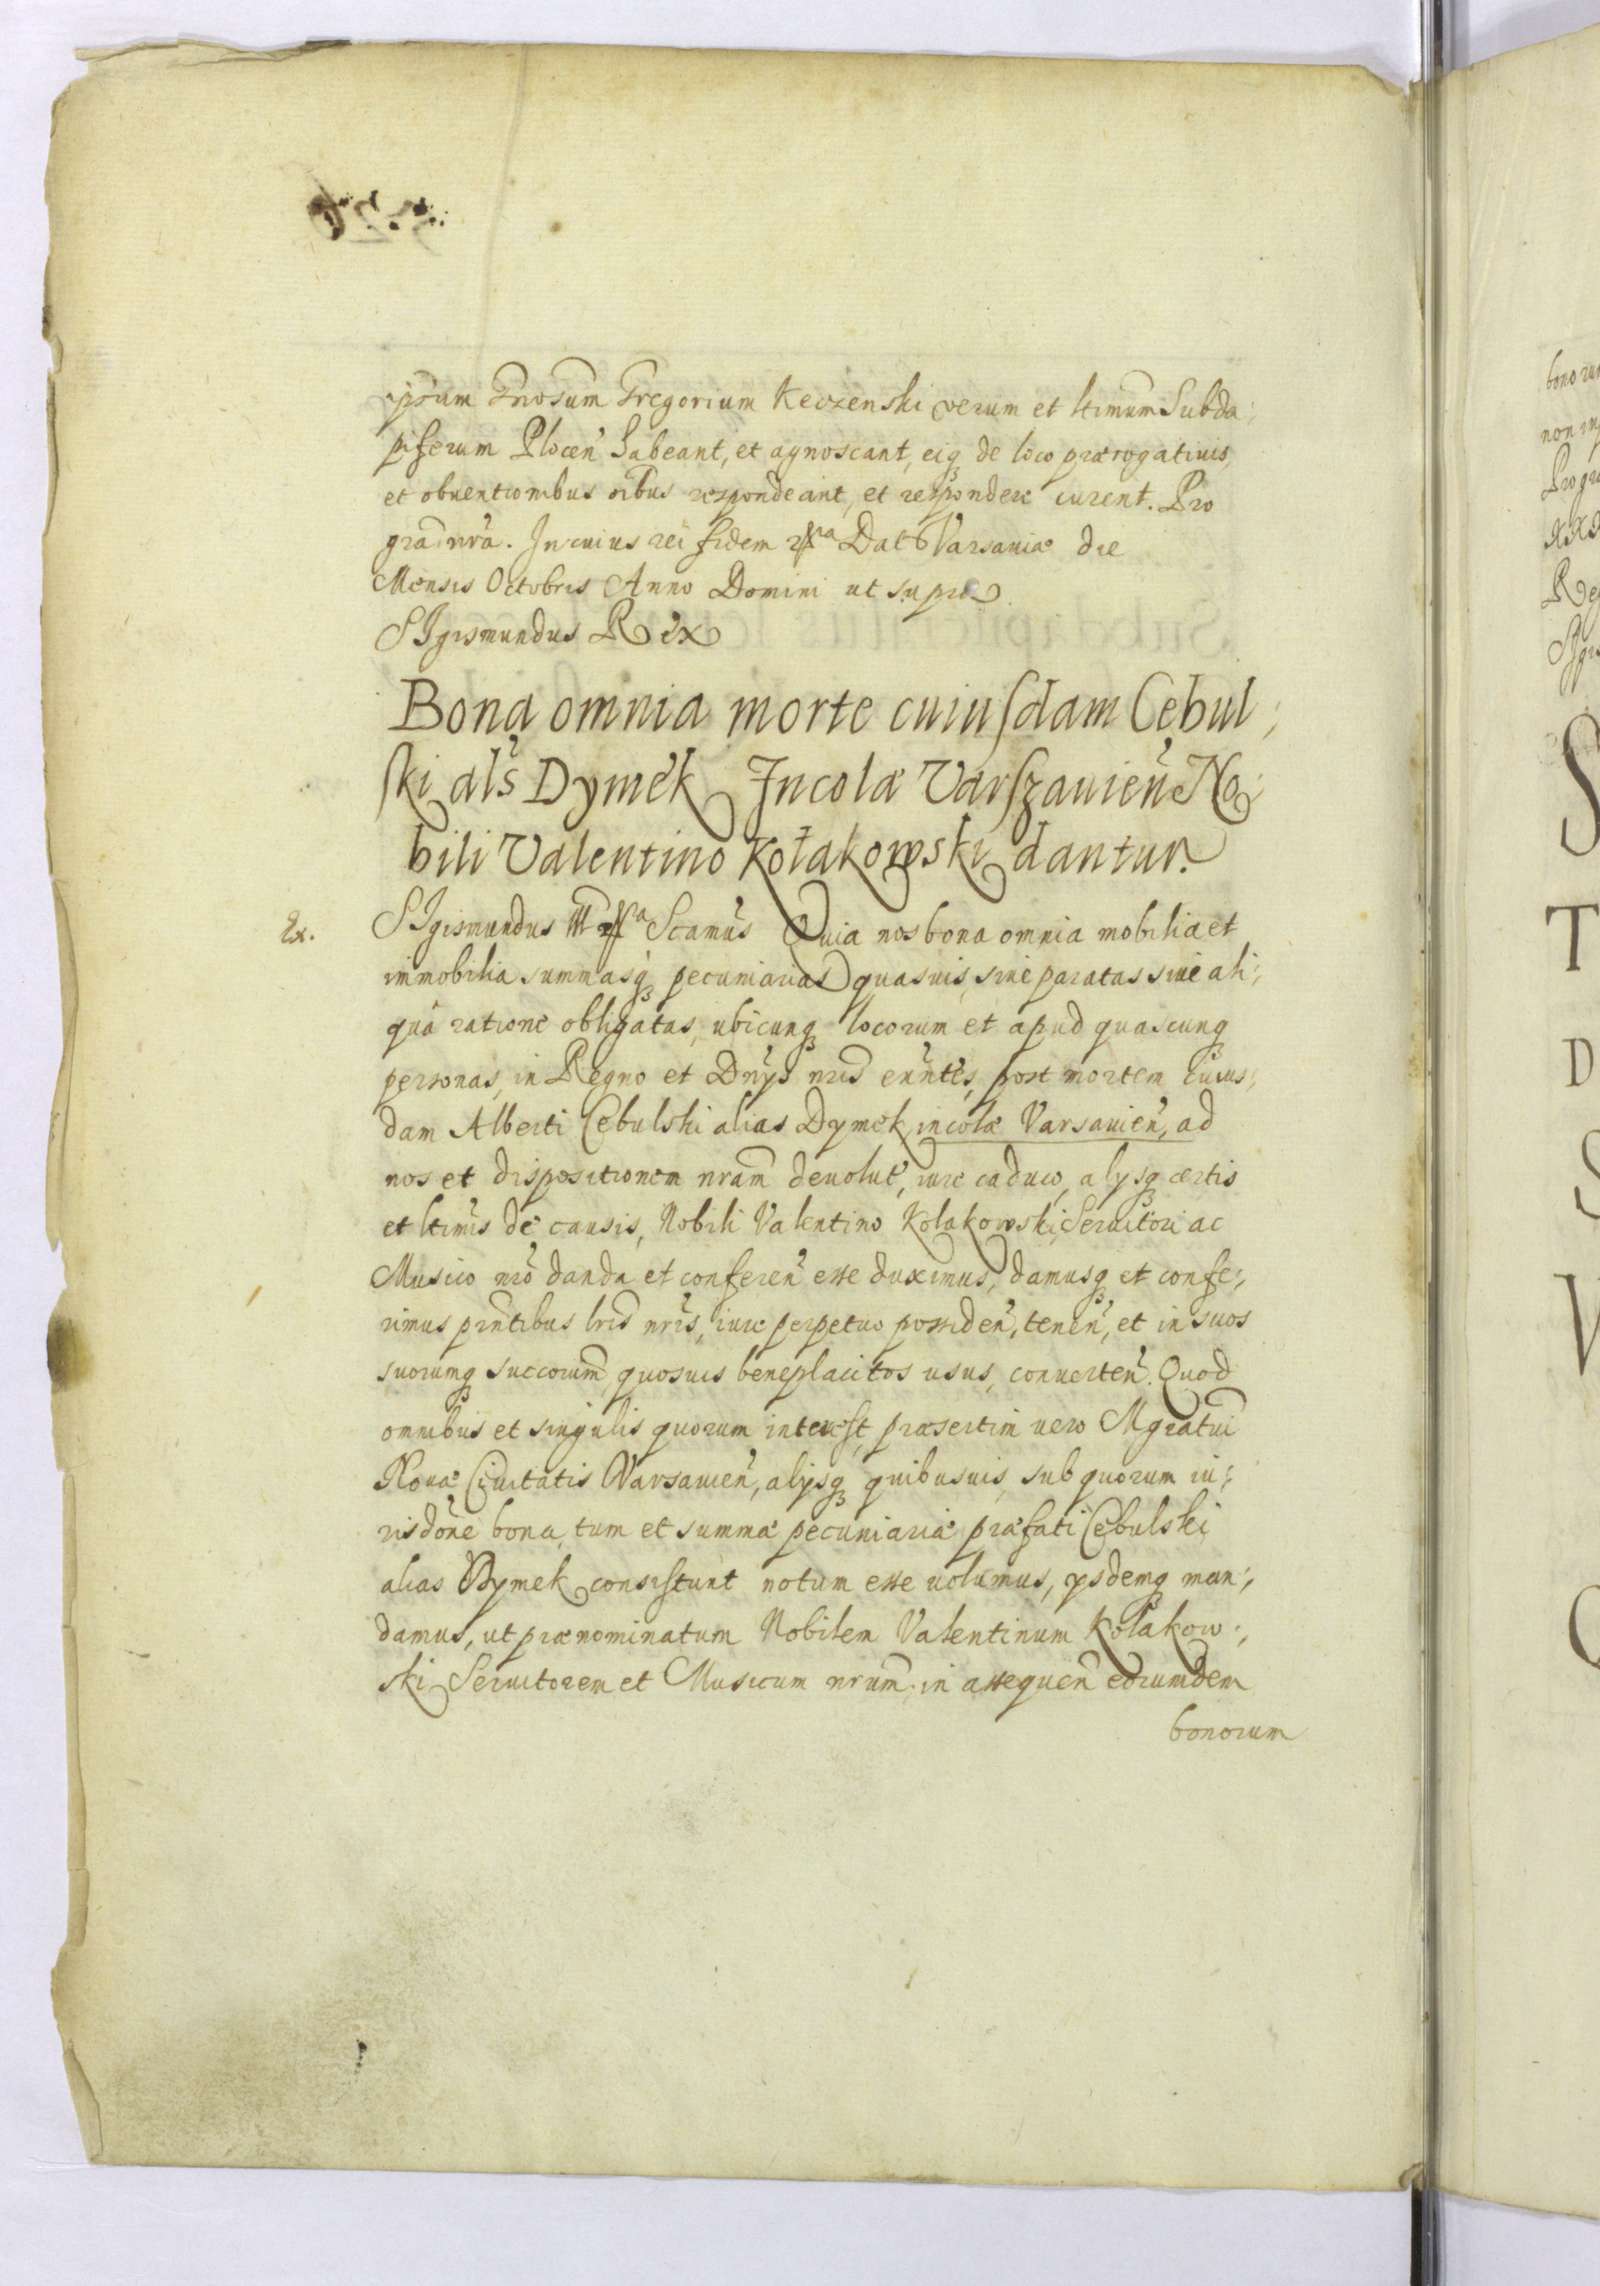 ipsum Gnosum Gregorium Kevzenski verum et ltimum Subda:
piferum Plocen̄ habeant, et agnoscant, eiqꝫ de loco prærogatiuis,
et obuentionibus oībus respondeant, et respondere curent. Pro
gra nrā. In cuius rei fidem Dat Varsauiæ die
Mensis Octobris Anno Domini ut supra
SIgismundus Rex
Bona omnia morte cuiusdam Cebul:
ski al̄s Dymek Incolæ Varszauien̄ No:
bili Valentino Kołakowski dantur.
Ex.
SIgismundus III Scamus Quia nos bona omnia mobilia et
immobilia summasqꝫ pecuniarias quasuis, siue paratas siue ali:
quâ ratione obligatas, ubicunqꝫ locorum et apud quascunqꝫ
personas, in Regno et Dnÿs nris exn̄tes, post mortem cuius:
dam Alberti Cebulski alias Dymek incolæ Varsauien̄, ad
nos et dispositionem nram̄ deuolut, iure caduco, alysqꝫ certis
et ltimis de causis, Nobili Valentino Kolakowski Seruitori ac
Musico nrō danda et conferen̄ esse duximus, damusqꝫ et confe:
rimus pn̄tibus lris nris, iure perpetuo possiden̄, tenen̄, et in suos
suorumqꝫ succorum̄ quosuis beneplacitos usus, conuerten̄. Quod
omnibus et singulis quorum interest, præsertim vero Mgratui
Nouæ Ciuitatis Varsauien̄, alysqꝫ quibusuis, sub quorum iu:
risdōne bona, tum et summæ pecuniariæ præfati Cebulski
alias Dymek consistunt notum esse uolumus, ysdemqꝫ man:
damus, ut prænominatum Nobilem Valentinum Kolakow:
ski Seruitorem et Musicum nrum̄ in assequen̄ eorumdem
bonorum